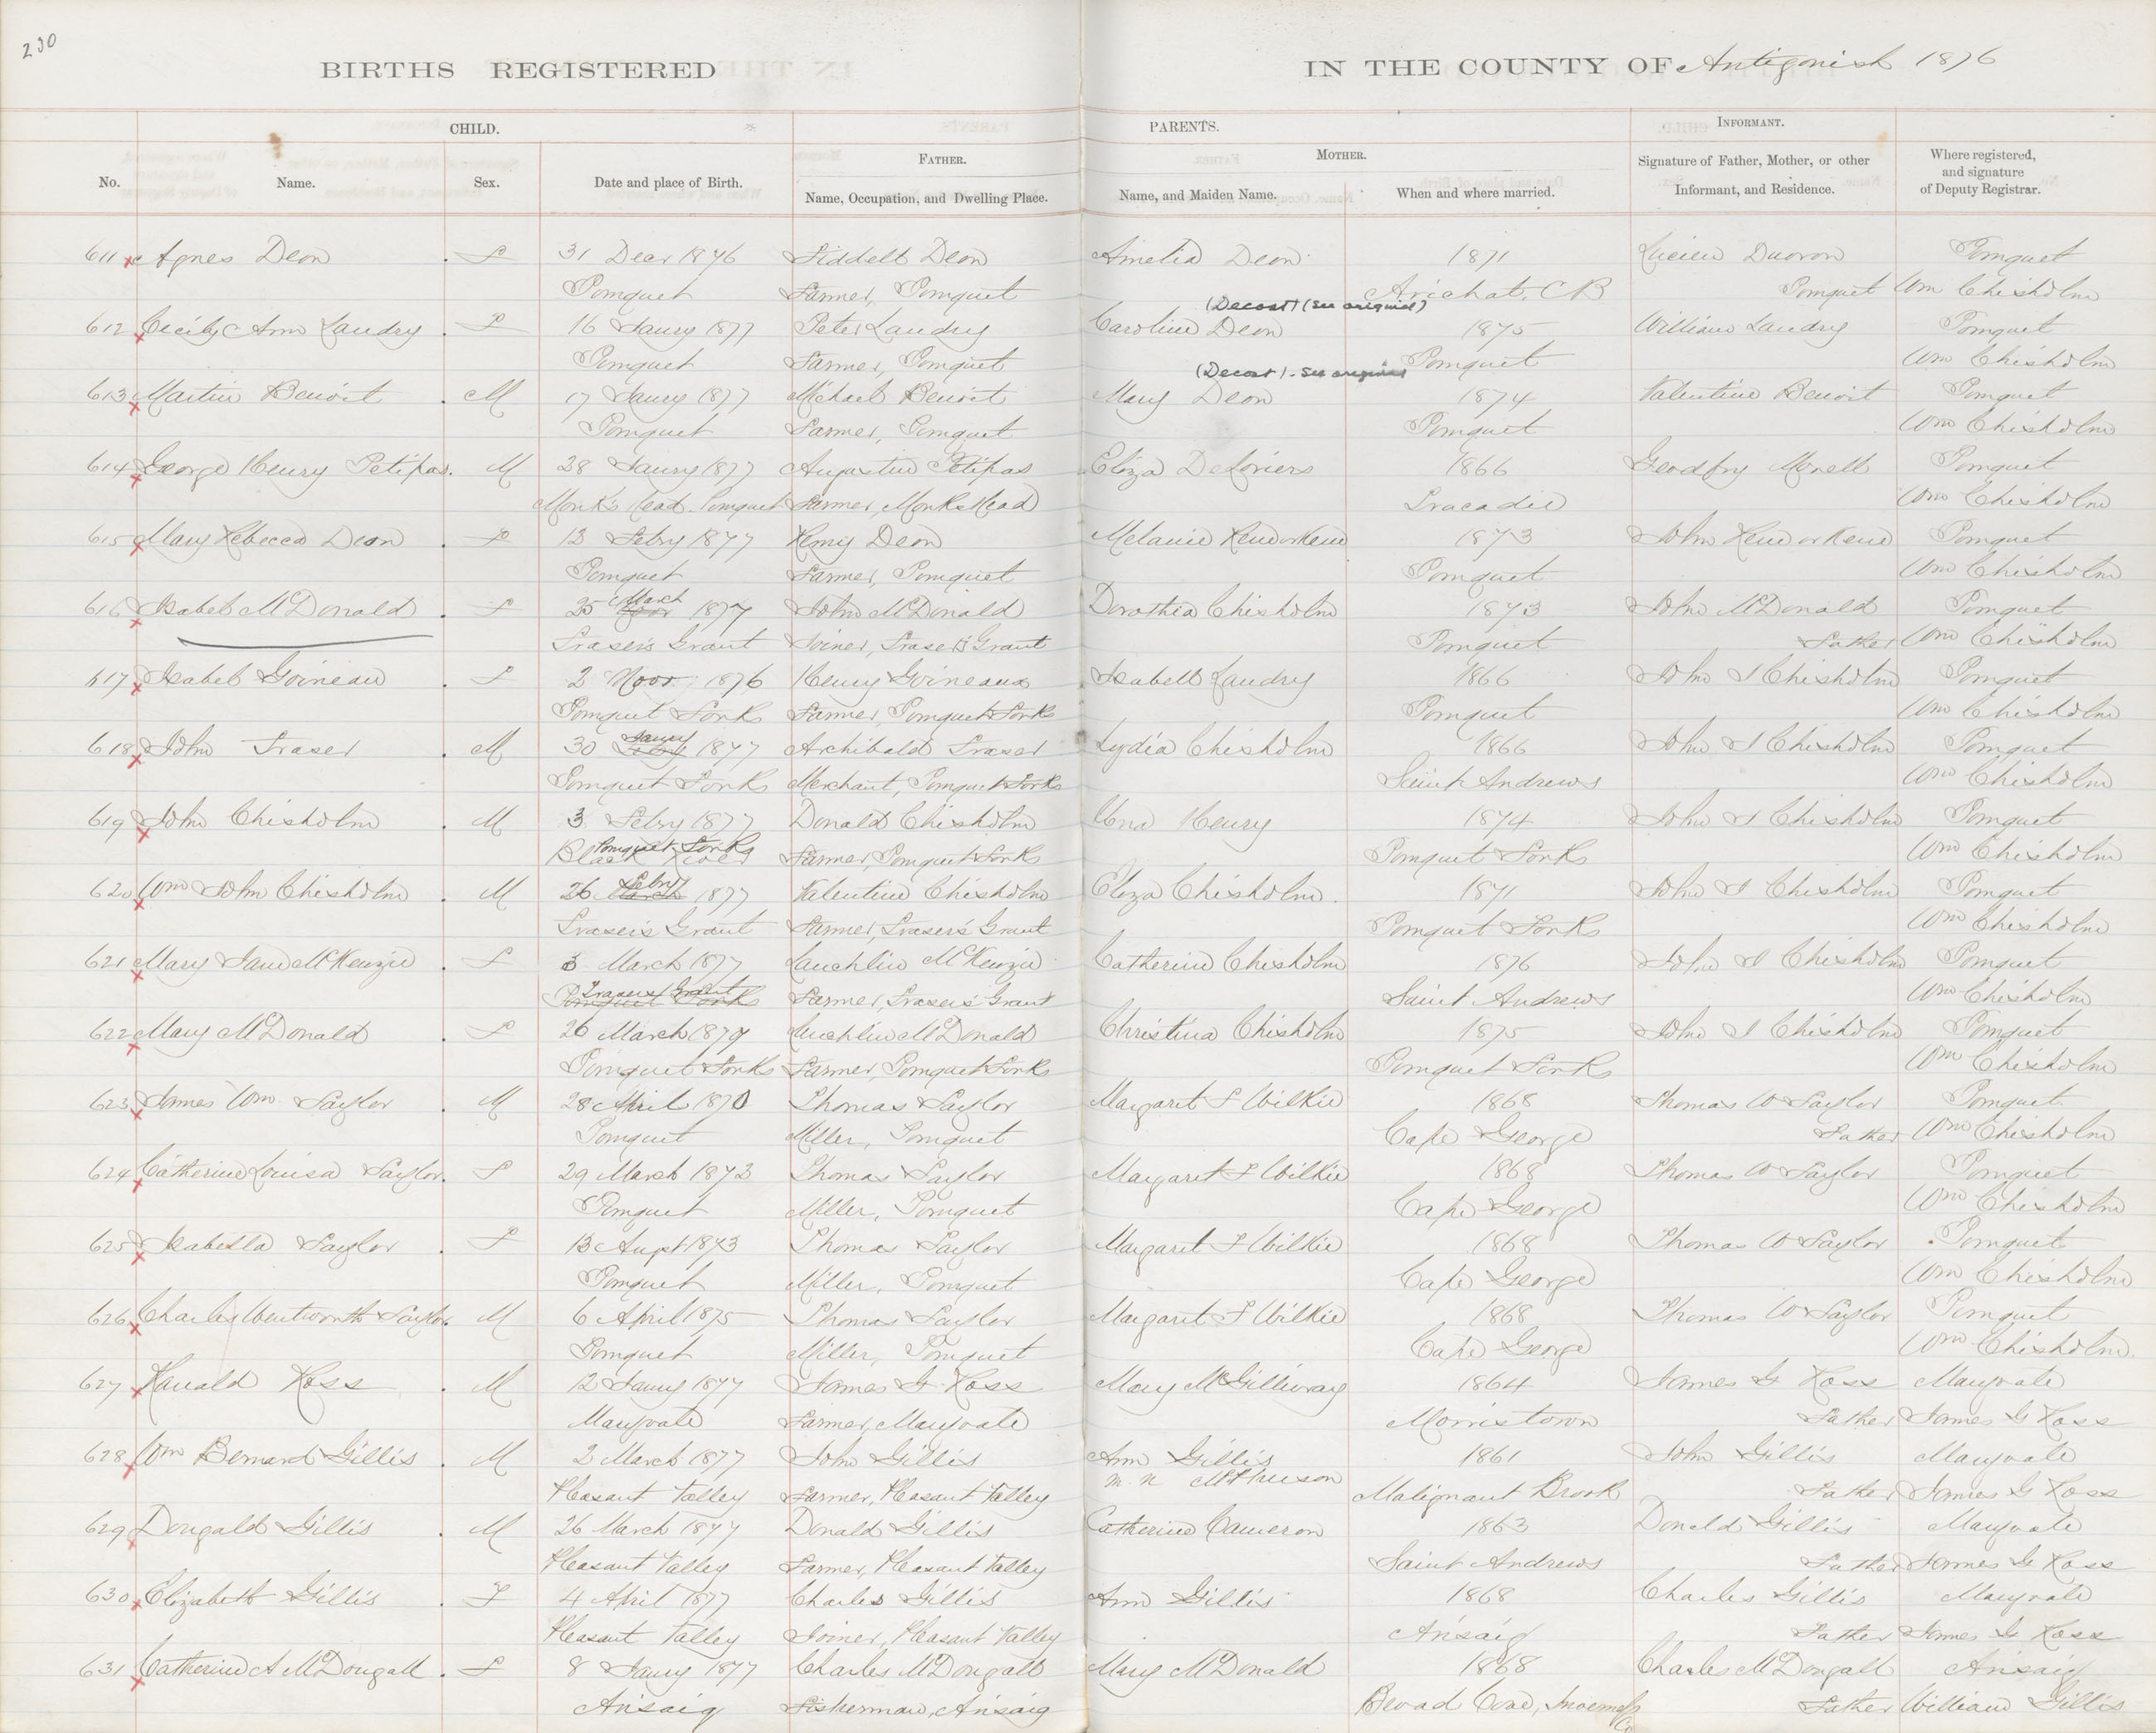 230
BIRTHS REGISTERED IN THE COUNTY OF Antigonish 1876
CHILD. PARENTS. INFORMANT.
FATHER. MOTHER.
No. Name. Sex. Date and place of Birth. Name, Occupation, and Dwelling Place. Name, and Maiden Name. When and where married. Signature of Father, Mother, or other Informant, and Residence. Where registered, and signature of Deputy Registrar.
611 Agnes Deon F 31 Decr 1876 Siddell Deon Amelia Deon 1871 Lucien Duoron Pomquet
Pomquet Farmer, Pomquet Arichat, CB Pomquet Wm Chisholm
(Decost) (see original)
612 Cecily Ann Landry F 16 Jaury 1877 Peter Landry Caroline Deon 1875 William Landry Pomquet
Pomquet Farmer, Pomquet Pomquet Wm Chisholm
(Decost) - see original
613 Martin Benoit M 17 Jaury 1877 Michael Benoit Mary Deon 1874 Valentine Benoit Pomquet
Pomquet Farmer, Pomquet Pomquet Wm Chisholm
614 George Henry Petipas M 28 Jaury 1877 Augustin Petipas Eliza Deloriers 1866 Geodfry Merell Pomquet
Monk's Head. Pomquet Farmer, Monks Head Tracadie Wm Chisholm
615 Mary Rebecca Deon F 13 Febry 1877 Remy Deon Melanie 1873 John Pomquet
Pomquet Farmer, Pomquet Pomquet Wm Chisholm
616 Isabel McDonald F 25 March 1877 John McDonald Dorothia Chisholm 1873 John McDonald Pomquet
Frasers Grant Joiner, Frasers Grant Pomquet Father Wm Chisholm
617 Isabel Goineau F 2 Novr. 1876 Henry Goineaux Isabell Landry 1866 John J Chisholm Pomquet
Pomquet Forks Farmer, Pomquet Forks Pomquet Wm Chisholm
618 John Fraser M 30 Jaury 1877 Archibald Fraser Lydia Chisholm 1866 John J Chisholm Pomquet
Pomquet Forks Merchant, Pomquet Forks Saint Andrews Wm Chisholm
619 John Chisholm M 3 Febry 1877 Donald Chisholm Una Henry 1874 John J Chisholm Pomquet
Pomquet Forks
Black River Farmer, Pomquet Forks Pomquet Forks Wm Chisholm
620 Wm John Chisholm M 26 Febry 1877 Valentine Chisholm Eliza Chisholm 1871 John J Chisholm Pomquet
Frasers Grant Farmer, Frasers Grant Pomquet Forks Wm Chisholm
621 Mary Jane McKenzie F 3 March 1877 Lauchlin McKenzie Catherine Chisholm 1876 John J Chisholm Pomquet
Frasers Grant
Pomquet Forks Farmer, Frasers Grant Saint Andrews Wm Chisholm
622 Mary McDonald F 26 March 1877 Lauchlin McDonald Christina Chisholm 1875 John J Chisholm Pomquet
Pomquet Forks Farmer, Pomquet Forks Pomquet Forks Wm Chisholm
623 James Wm Taylor M 28 April 1870 Thomas Taylor Margaret F Wilkie 1868 Thomas W Taylor Pomquet
Pomquet Miller, Pomquet Cape George Father Wm Chisholm
624 Catherine Louisa Taylor F 29 March 1873 Thomas Taylor Margaret F Wilkie 1868 Thomas W Taylor Pomquet
Pomquet Miller, Pomquet Cape George Wm Chisholm
625 Isabella Taylor F 13 Augst 1873 Thomas Taylor Margaret F Wilkie 1868 Thomas W Taylor Pomquet
Pomquet Miller, Pomquet Cape George Wm Chisholm
626 Charles Wentworth Taylor M 6 April 1875 Thomas Taylor Margaret F Wilkie 1868 Thomas W Taylor Pomquet
Pomquet Miller, Pomquet Cape George Wm Chisholm
627 Ranald Ross M 12 Jaury 1877 James G Ross Mary McGillivray 1864 James G Ross Maryvale
Maryvale Farmer, Maryvale Morristown Father James G Ross
628 Wm Bernard Gillis M 2 March 1877 John Gillis Ann Gillis 1861 John Gillis Maryvale
m.n McPherson
Pleasant Valley Farmer, Pleasant Valley Malignant Brook Father James G Ross
629 Dougald Gillis M 26 March 1877 Donald Gillis Catherine Cameron 1863 Donald Gillis Maryvale
Pleasant Valley Farmer, Pleasant Valley Saint Andrews Father James G Ross
630 Elizabeth Gillis F 4 April 1877 Charles Gillis Ann Gillis 1868 Charles Gillis Maryvale
Pleasant Valley Joiner, Pleasant Valley Arisaig Father James G Ross
631 Catherine A McDougall F 8 Jaury 1877 Charles McDougall Mary McDonald 1868 Charles McDougall Arisaig
Arisaig Fisherman, Arisaig Broad Cove, Inverness Co Father William Gillis